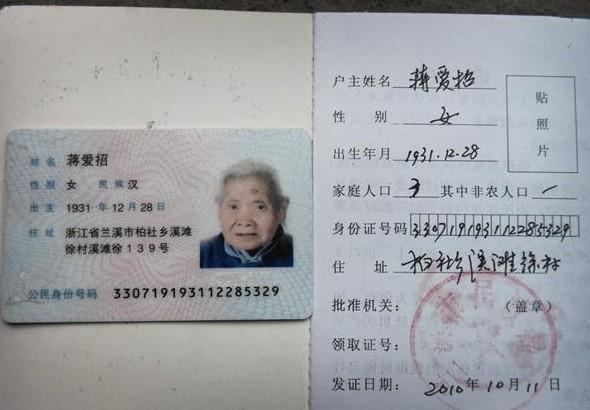 姓名 蒋爱招
性别 女 民族 汉
出生 1931 年 12 月 28 日
住址 浙江省兰溪市柏社乡溪滩
徐村溪滩徐139号
公民身份号码 330719193112285329
户主姓名 蒋爱招
性 别 女
出生年月 1931.12.28
家庭人口 3 其中非农人口 一
身份证号码 330719193112285329
住 址 柏社乡溪滩徐村
批准机关: (盖章)
领取证号:
发证日期: 2010年10月11日
贴照片